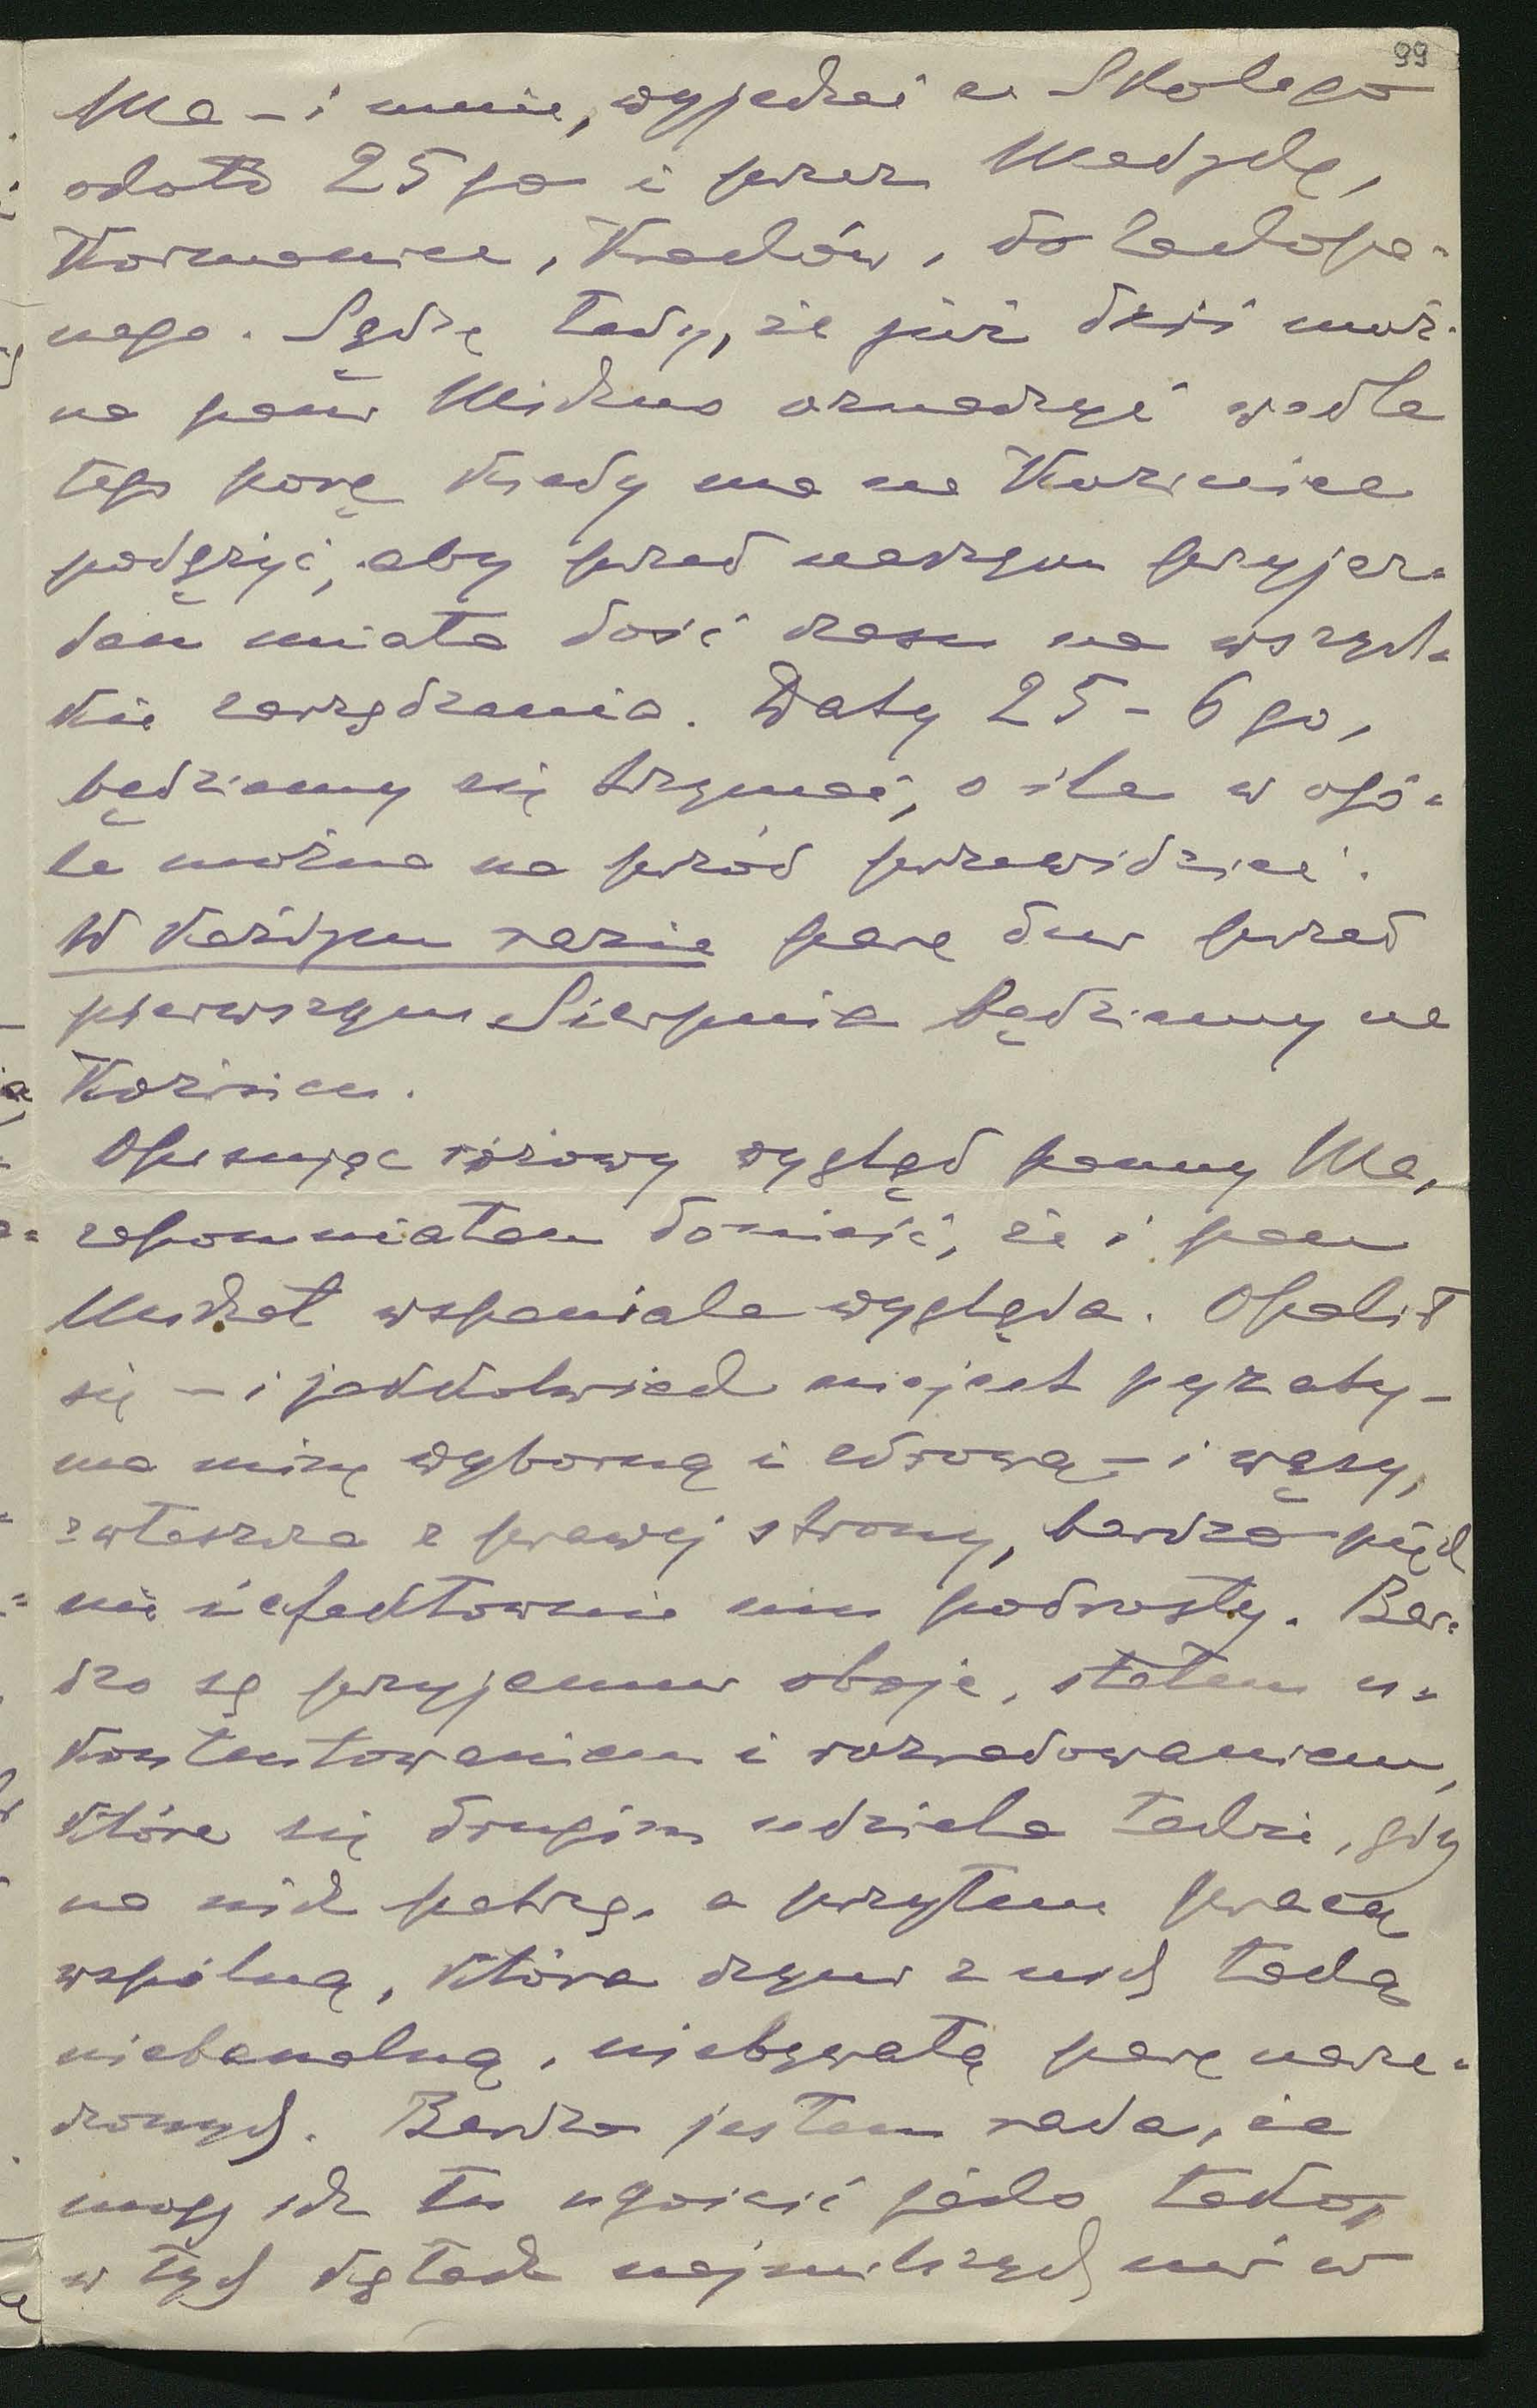 99
Ma - i mnie, wyjechać ze Skolego
około 25go i przez Medykę,
Kormanice, Kraków, do Zakopa-
nego. Sądzę tedy, że już dziś moż-
na panu oznaczyć wedle
tego porę kiedy ma na Koziniec
podążyć, aby przed naszym przyjaz-
dem miała dość czasu na wszyst-
kie zarządzenia. Daty 25-6go,
będziemy się trzymać, o ile w ogó-
le można na przód przewidzieć.
W każdym razie parę dni przed
pierwszym Sierpnia będziemy na
Kozińcu.
Opisując różowy wygląd panny Ma,
zapomniałam donieść, że i pan
Michał wspaniale wygląda. Opalił
się - i jakkolwiek nie jest pyzaty -
ma minę wyborną i zdrową - i wąsy,
zwłaszcza z prawej strony, bardzo pięk
nie i efektownie mu podrosły. Bar-
dzo są przyjemni oboje, stałem u-
kontentowaniem i rozradowaniem,
które się drugim udziela także, gdy
na nich patrzą, a przytem pracą
wspólną, która czyni z nich taką
niebanalną, niebywałą parę narze-
czonych. Bardzo jestem rada, że
mogę ich tu ugościć jako tako,
w tych kątach najmilszych mi w